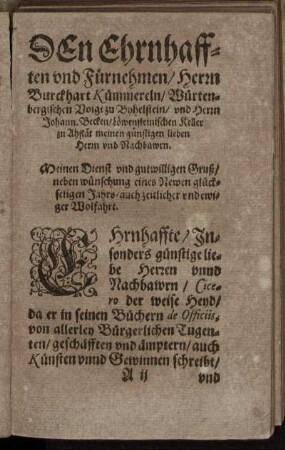 DEn Ehrnhaff-
ten vnd Fürnehmen/ Herrn
Burckhart Kümmereln/ Würten-
bergischen Voigt zu Bohelstein/ vnd Herrn
Johann. Becken/ Löwensteinischen Keller
zu Abstät meinen günstigen lieben
Herrn vnd Nachbawrn.
Meinen Dienst vnd gutwilligen Gruß/
neben wünschung eines Newen glück-
seligen Jahrs/ auch zeitlicher vnd ewi-
ger Wolfahrt.
EHrnhaffte/ In-
sonders günstige lie-
be Herren vnnd
Nachbawrn/ Cice-
ro der weise Heyd/
da er in seinen Büchern de Officiis,
von allerley Bürgerlichen Tugen-
ten/ geschäfften vnd ämptern/ auch
Künsten vnnd Gewinnen schreibt/
A ij vnd